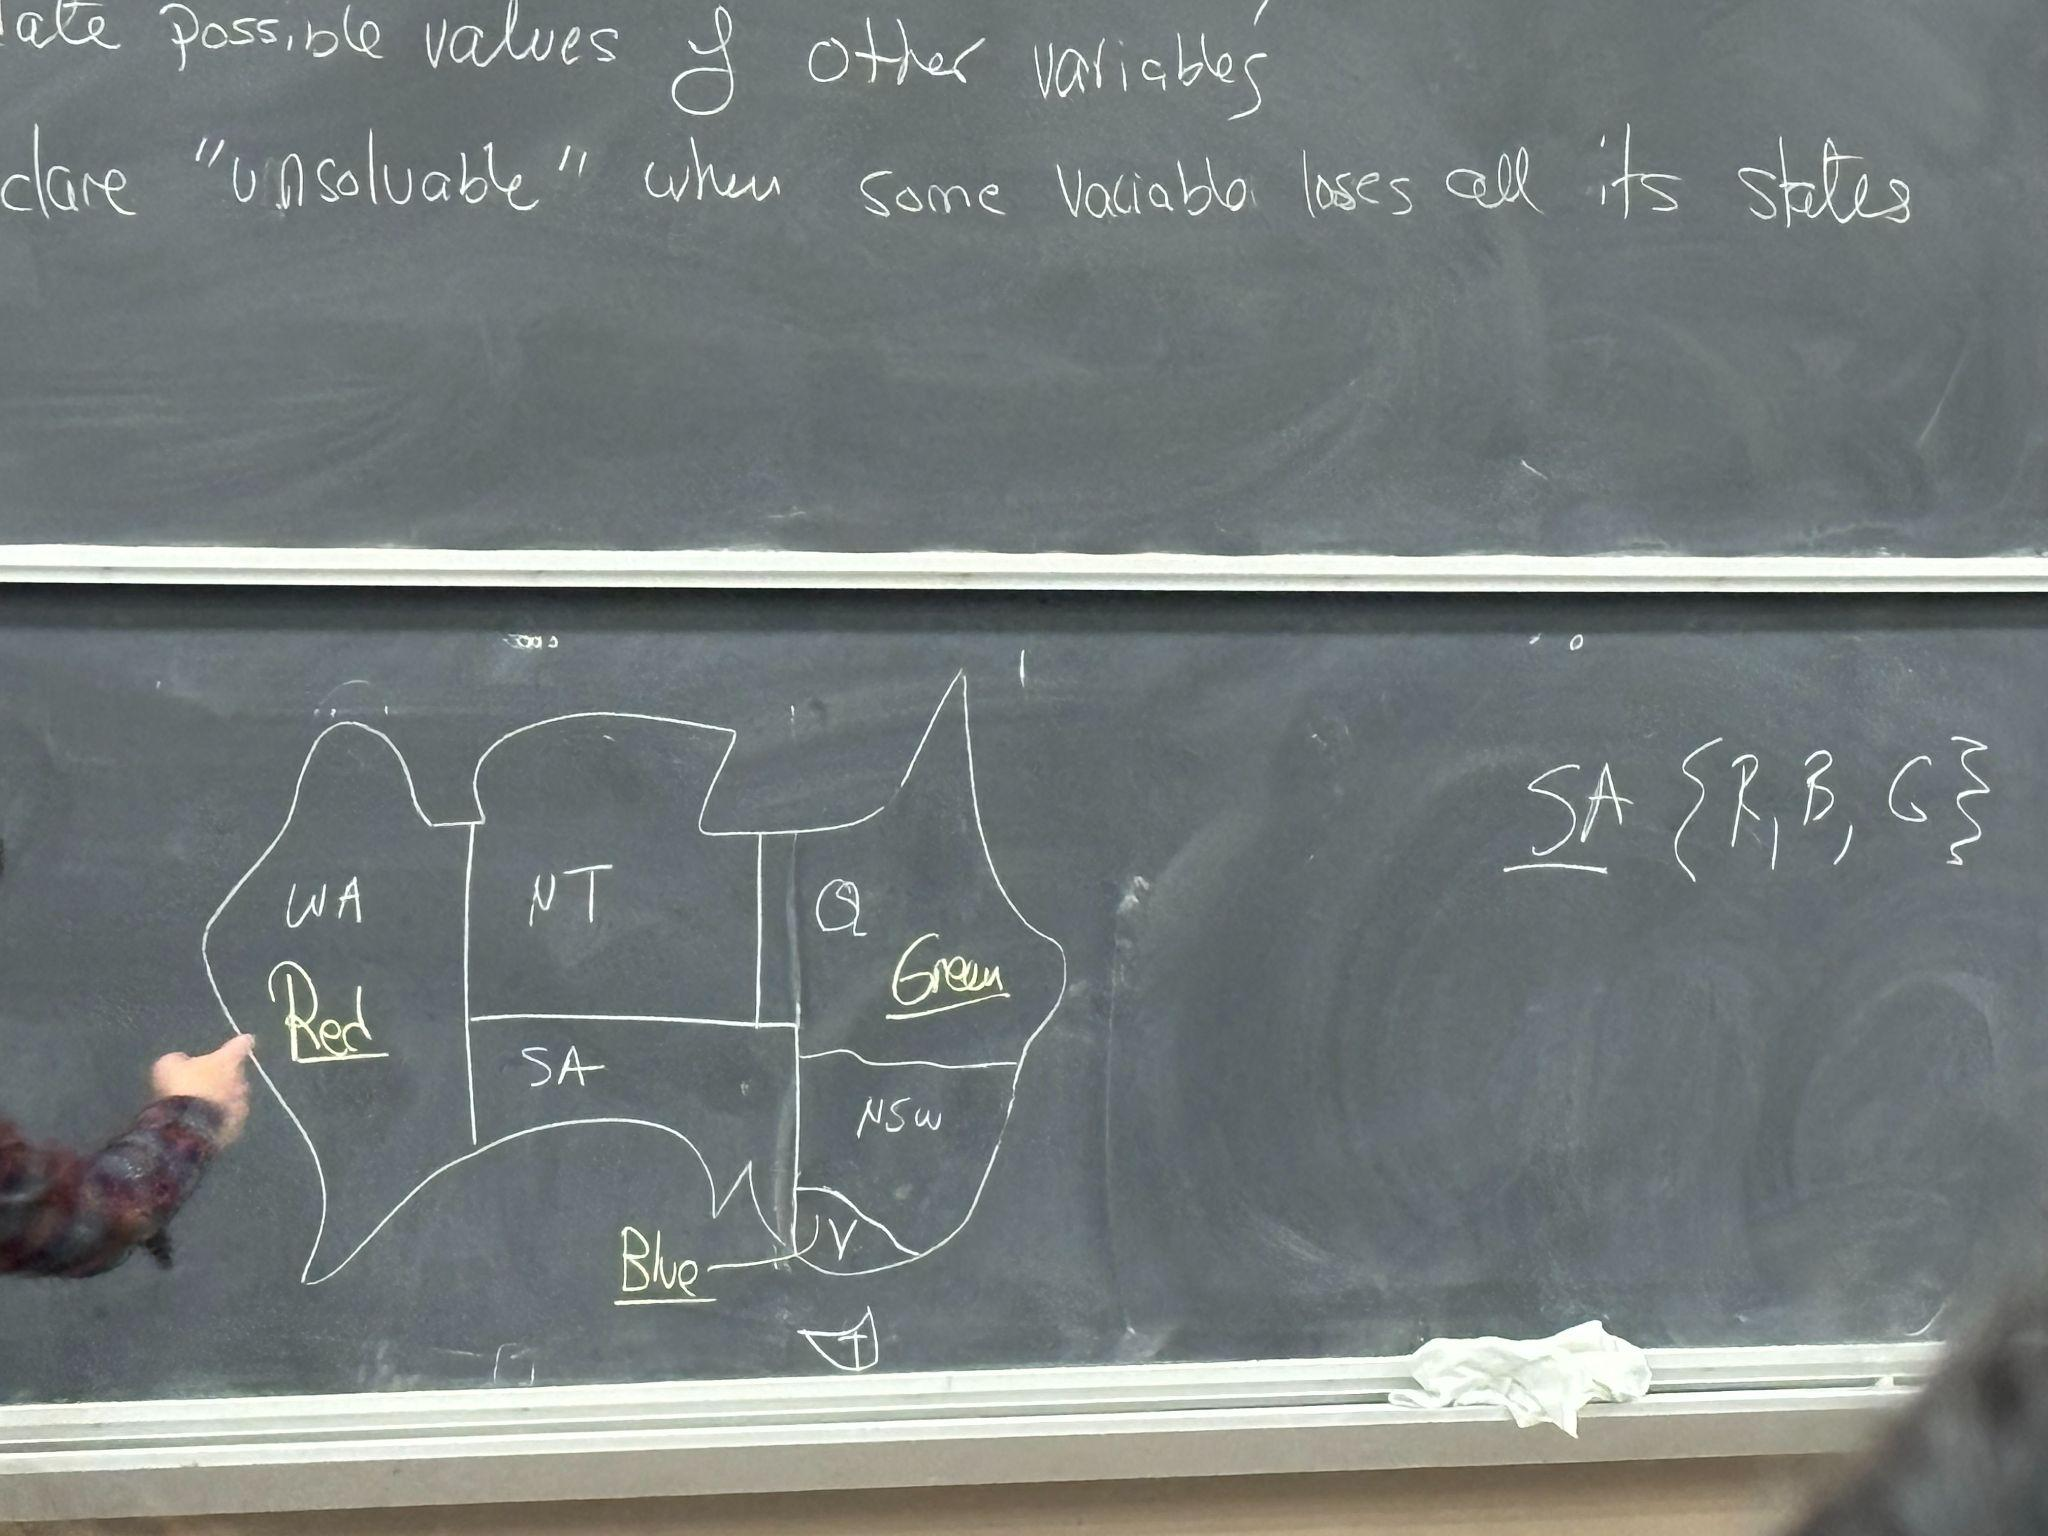 possible values of other variables
clare "unsolvable" when some variable loses all its states
SA {R, B, G}
WA
NT
Q
Red
Green
SA
NSW
V
Blue
T